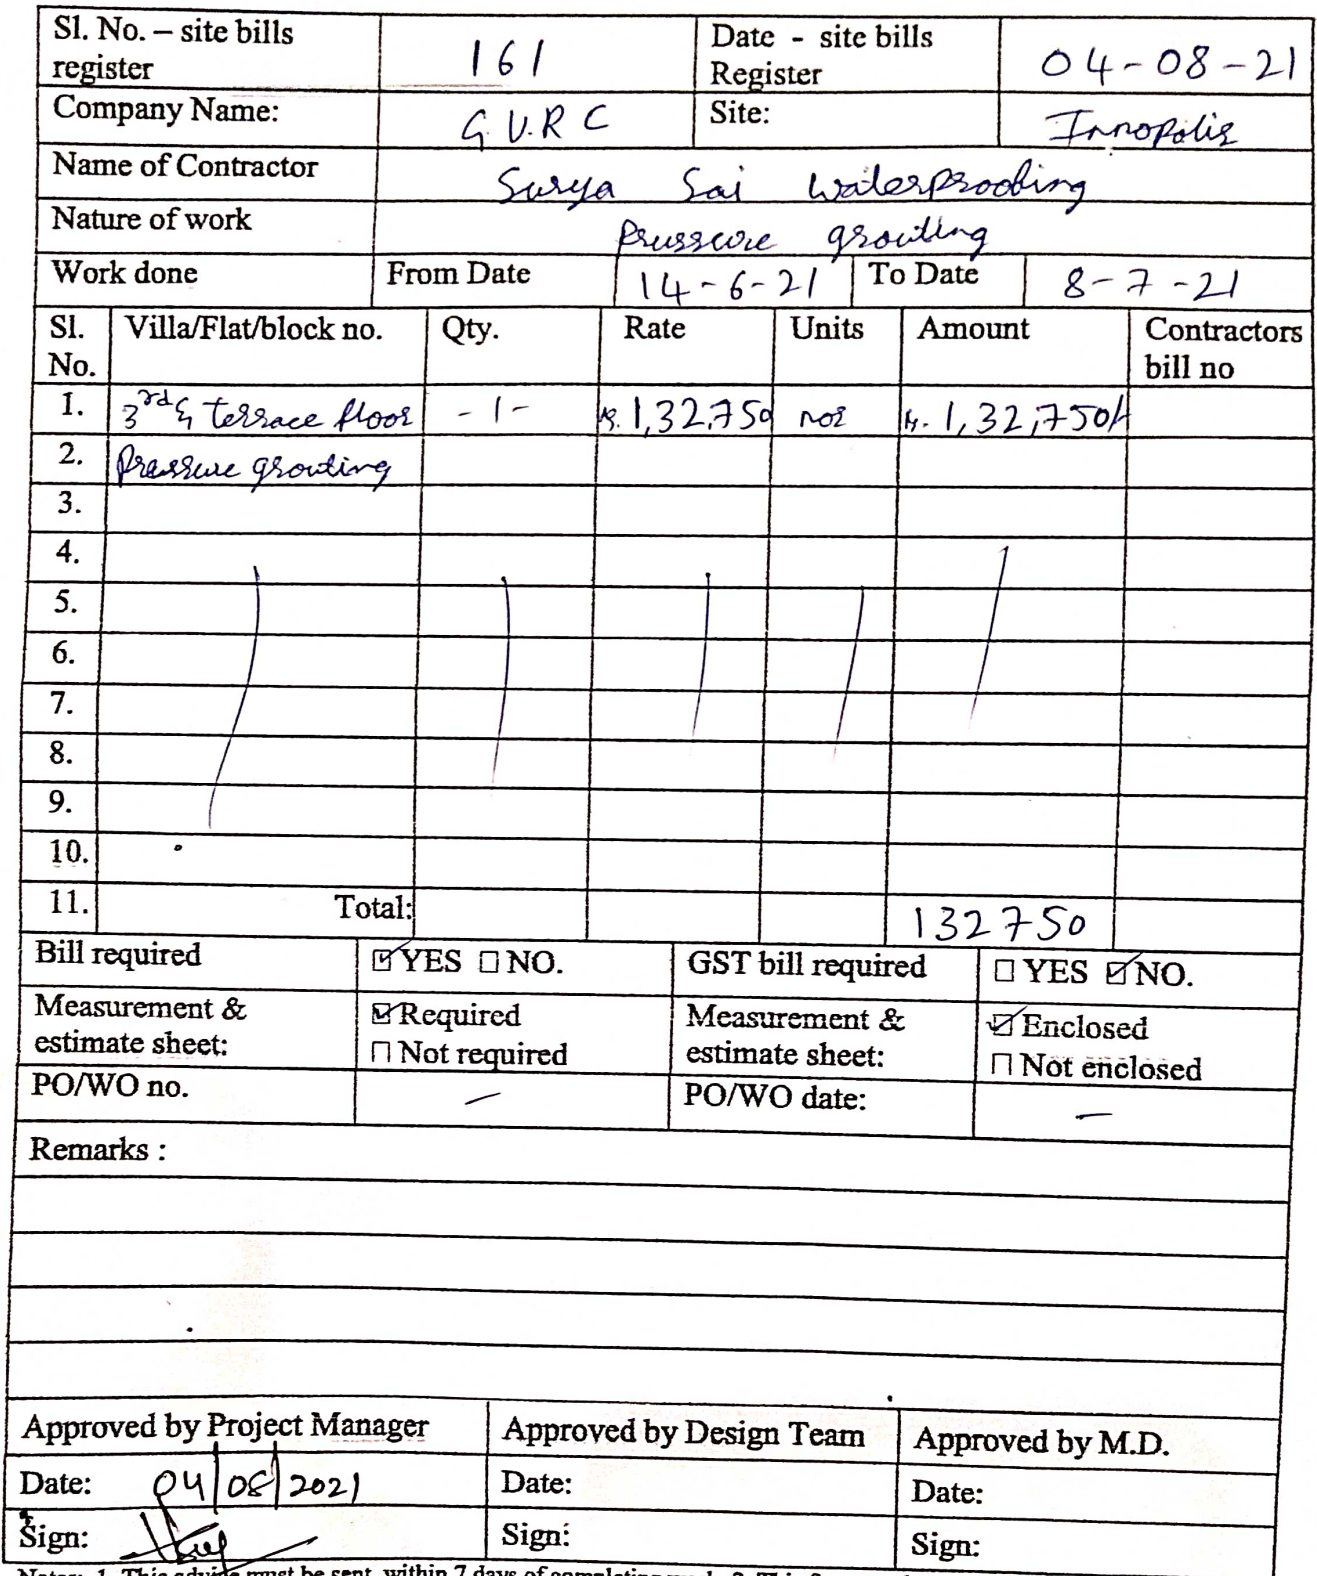 Sl. No. – site bills register 161 Date - site bills Register 04-08-21
Company Name: G.V.R.C Site: Innopolis
Name of Contractor Surya Sai Waterproofing
Nature of work Prusscure grouting
Work done From Date 14-6-21 To Date 8-7-21
Sl. No. Villa/Flat/block no. Qty. Rate Units Amount Contractors bill no
1. 3rd & terrace floor -1- Rs. 1,32,750 nos Rs. 1,32,750/-
2. Pressure grouting
3.
4.
5.
6.
7.
8.
9.
10.
11. Total: 132750
Bill required ☑ YES ☐ NO. GST bill required ☐ YES ☑ NO.
Measurement & estimate sheet: ☑ Required ☐ Not required Measurement & estimate sheet: ☑ Enclosed ☐ Not enclosed
PO/WO no. – PO/WO date: –
Remarks :
Approved by Project Manager Approved by Design Team Approved by M.D.
Date: 04/08/2021 Date: Date:
Sign: Sign: Sign: